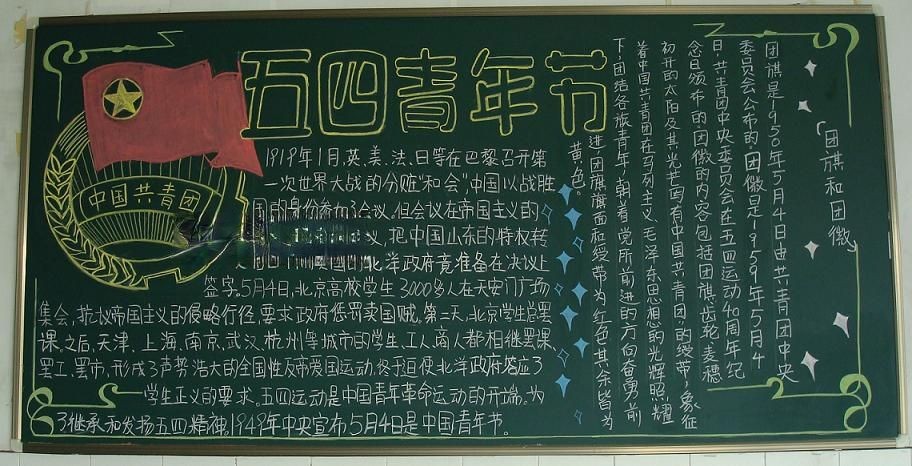 五四青年节
中国共青团
1919年1月,英、美、法、日等在巴黎召开第
一次世界大战的分赃“和会”,中国以战胜
国的身份参加了会议,但会议在帝国主义的
议,把中国山东的特权转
北洋政府竟准备在决议上
签字。5月4日,北京高校学生3000多人在天安门广场
集会,抗议帝国主义的侵略行径,要求政府惩罚卖国贼。第二天,北京学生总罢
课。之后,天津、上海、南京、武汉、杭州等城市的学生、工人、商人都相继罢课、
罢工、罢市,形成了声势浩大的全国性反帝爱国运动,终于迫使北洋政府答应了
学生正义的要求,五四运动是中国青年革命运动的开端。为
了继承和发扬五四精神。1949年中央宣布5月4日是中国青年节。
「团旗和团徽」
团旗是1950年5月4日由共青团中央
委员会公布的,团徽是1959年5月4
日,共青团中央委员会在五四运动40周年纪
念日颁布的,团徽的内容包括团旗、齿轮、麦穗
初升的太阳及其光芒,写有中国共青团”的绶带,象征
着中国共青团在马列主义、毛泽东思想的光辉照耀
下,团结各族青年,朝着党所前进的方向奋勇前
进,团旗旗面和绶带为红色,其余皆为
黄色。